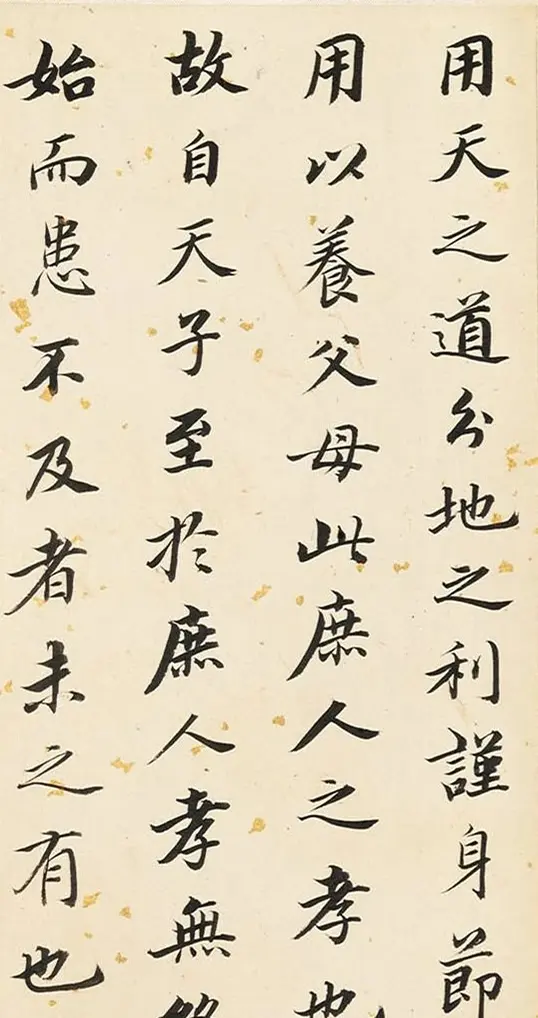 用天之道分地之利謹身節
用以養父母此庶人之孝也
故自天子至於庶人孝無
始而患不及者未之有也